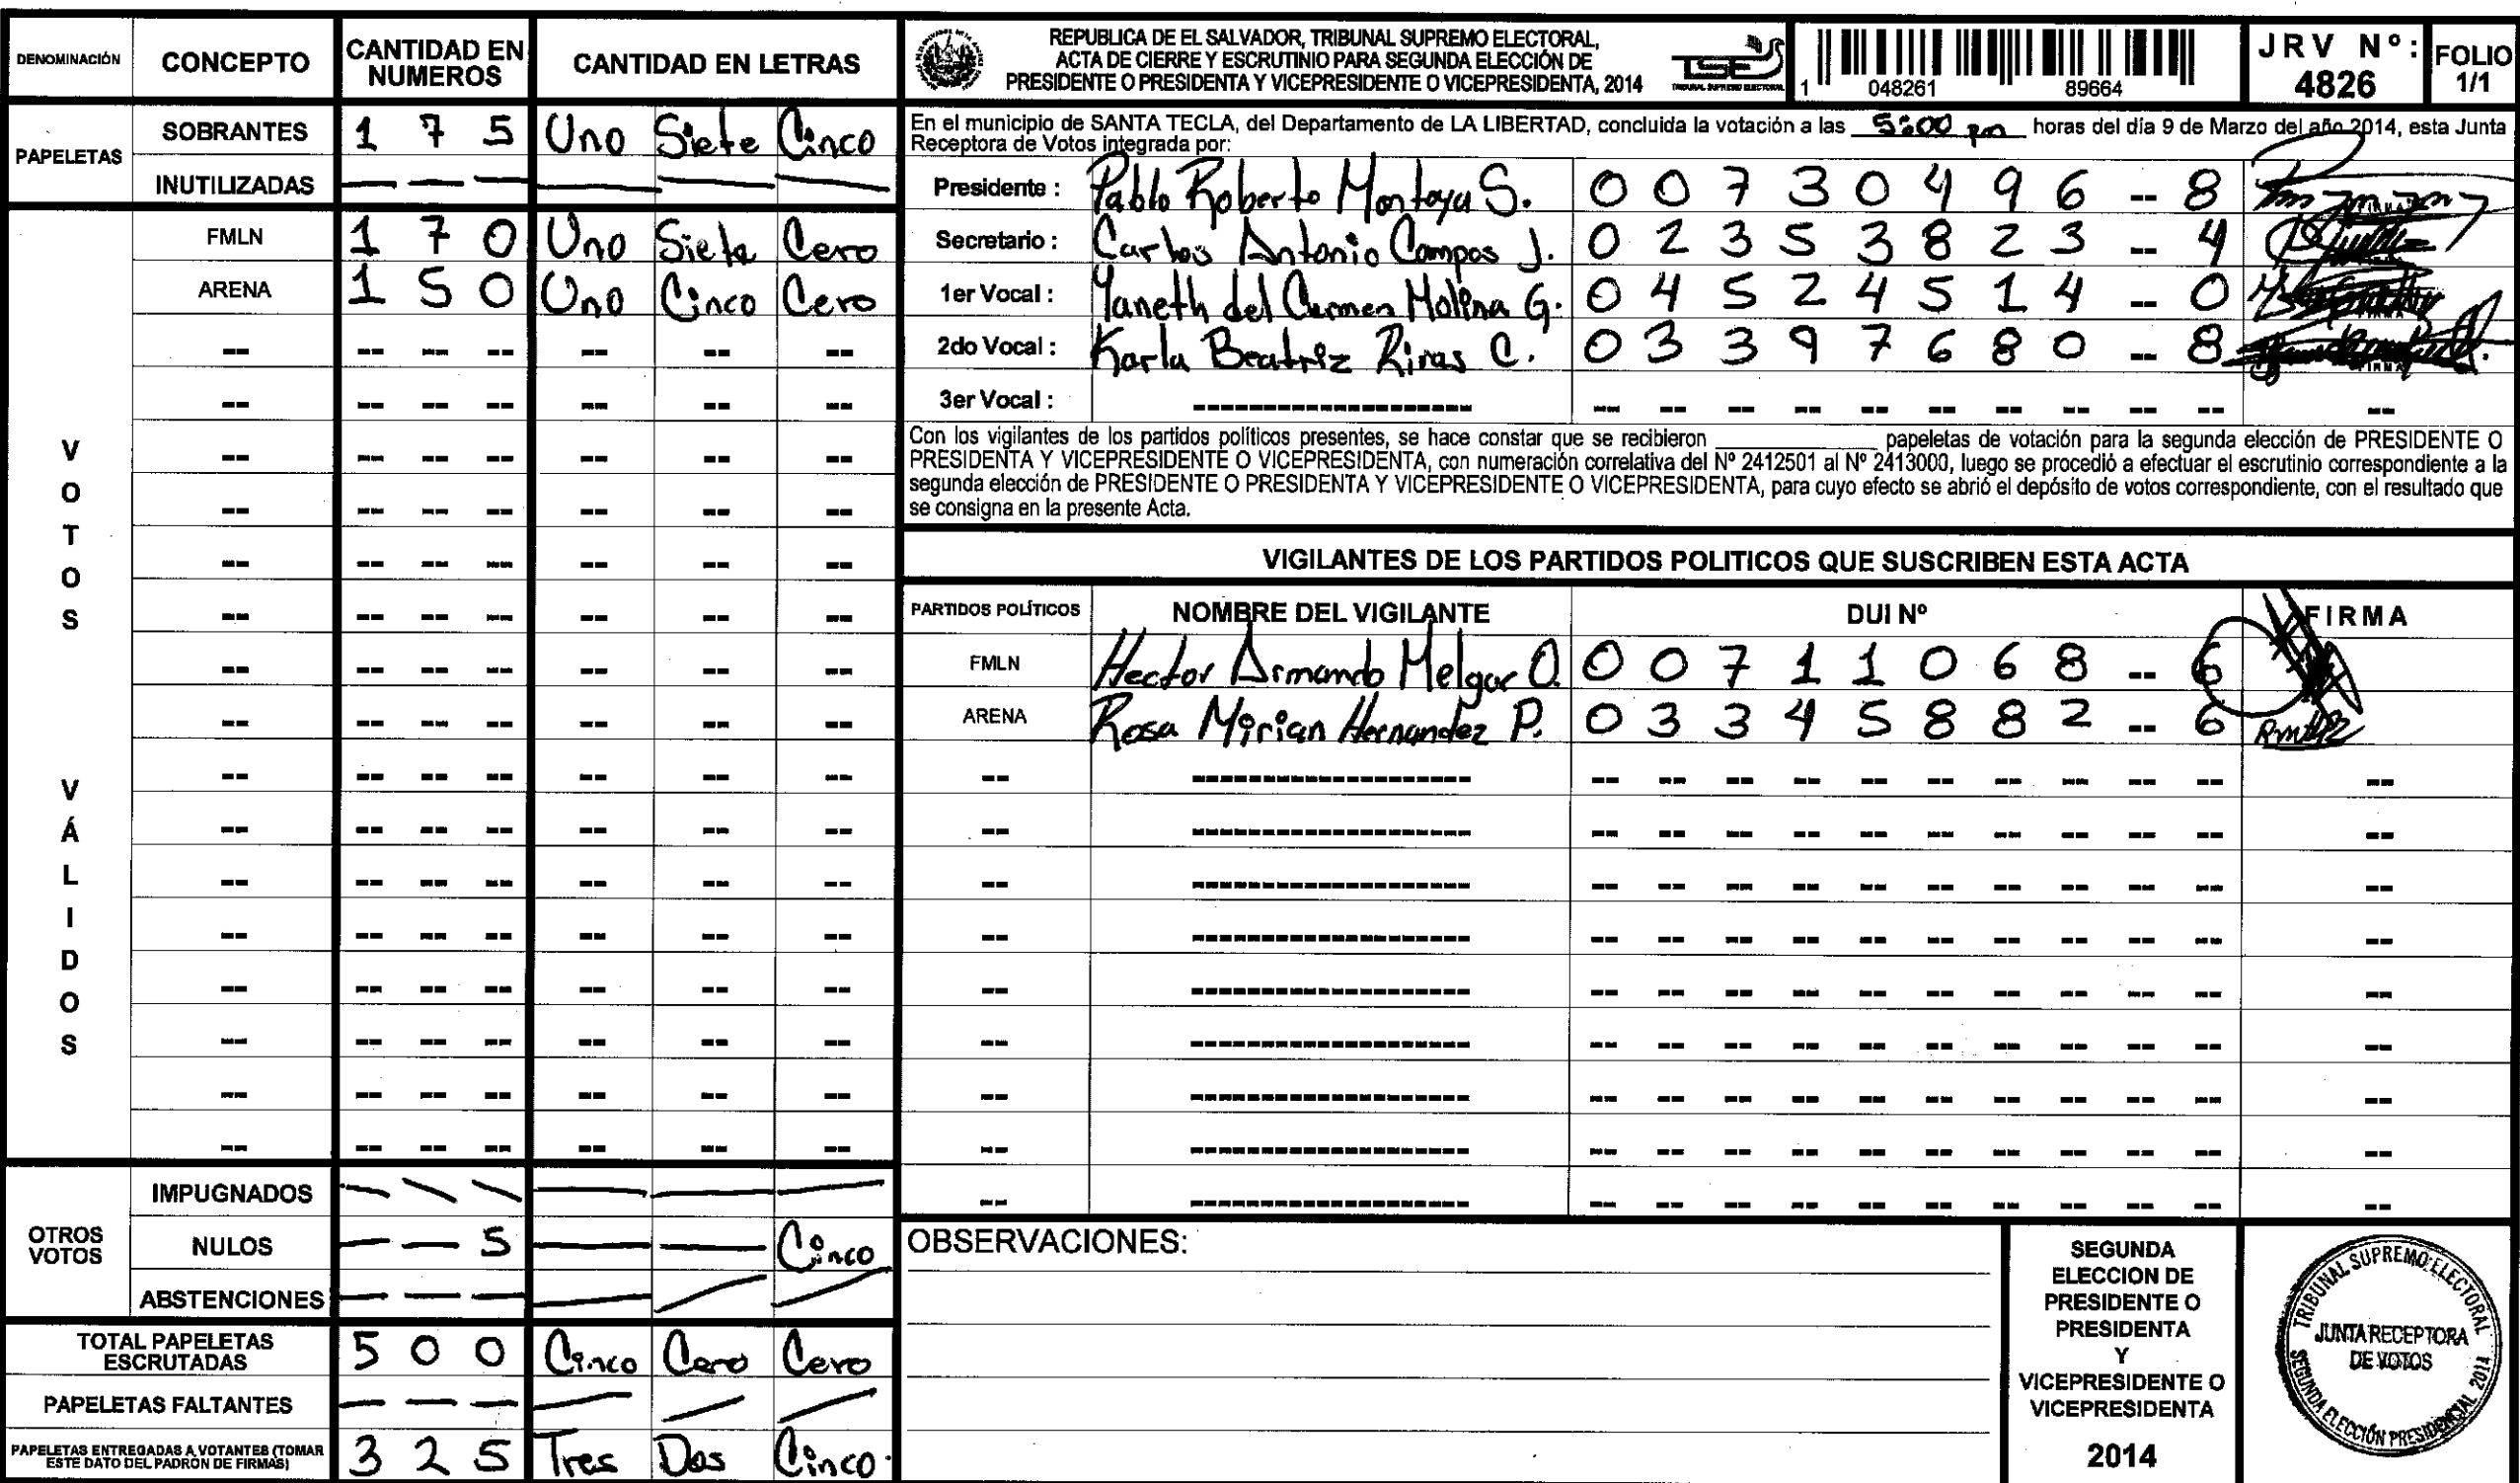 DENOMINACIÓN CONCEPTO CANTIDAD EN NUMEROS CANTIDAD EN LETRAS
PAPELETAS
SOBRANTES 1 7 5 Uno Siete Cinco
INUTILIZADAS — — — — — —
VOTOS VÁLIDOS
FMLN 1 7 0 Uno Siete Cero
ARENA 1 5 0 Uno Cinco Cero
OTROS VOTOS
IMPUGNADOS — — — — — —
NULOS — — 5 — — Cinco
ABSTENCIONES — — — — — —
TOTAL PAPELETAS ESCRUTADAS 5 0 0 Cinco Cero Cero
PAPELETAS FALTANTES — — — — — —
PAPELETAS ENTREGADAS A VOTANTES (TOMAR ESTE DATO DEL PADRÓN DE FIRMAS) 3 2 5 Tres Dos Cinco
REPUBLICA DE EL SALVADOR, TRIBUNAL SUPREMO ELECTORAL,
ACTA DE CIERRE Y ESCRUTINIO PARA SEGUNDA ELECCIÓN DE
PRESIDENTE O PRESIDENTA Y VICEPRESIDENTE O VICEPRESIDENTA, 2014
TSE
TRIBUNAL SUPREMO ELECTORAL
1 048261 89664
JRV Nº: 4826
FOLIO 1/1
En el municipio de SANTA TECLA, del Departamento de LA LIBERTAD, concluida la votación a las 5:00 pm horas del día 9 de Marzo del año 2014, esta Junta
Receptora de Votos integrada por:
Presidente : Pablo Roberto Montoya S. 0 0 7 3 0 4 9 6 -- 8
Secretario : Carlos Antonio Campos J. 0 2 3 5 3 8 2 3 -- 4
1er Vocal : Yaneth del Carmen Molina G. 0 4 5 2 4 5 1 4 -- 0
2do Vocal : Karla Beatriz Rivas C. 0 3 3 9 7 6 8 0 -- 8
3er Vocal :
Con los vigilantes de los partidos políticos presentes, se hace constar que se recibieron ________ papeletas de votación para la segunda elección de PRESIDENTE O
PRESIDENTA Y VICEPRESIDENTE O VICEPRESIDENTA, con numeración correlativa del Nº 2412501 al Nº 2413000, luego se procedió a efectuar el escrutinio correspondiente a la
segunda elección de PRESIDENTE O PRESIDENTA Y VICEPRESIDENTE O VICEPRESIDENTA, para cuyo efecto se abrió el depósito de votos correspondiente, con el resultado que
se consigna en la presente Acta.
VIGILANTES DE LOS PARTIDOS POLITICOS QUE SUSCRIBEN ESTA ACTA
PARTIDOS POLÍTICOS NOMBRE DEL VIGILANTE DUI Nº FIRMA
FMLN Hector Armando Melgar O. 0 0 7 1 1 0 6 8 -- 6
ARENA Rosa Mirian Hernandez P. 0 3 3 4 5 8 8 2 -- 6
OBSERVACIONES:
SEGUNDA
ELECCION DE
PRESIDENTE O
PRESIDENTA
Y
VICEPRESIDENTE O
VICEPRESIDENTA
2014
TRIBUNAL SUPREMO ELECTORAL
JUNTA RECEPTORA
DE VOTOS
SEGUNDA ELECCIÓN PRESIDENCIAL 2014